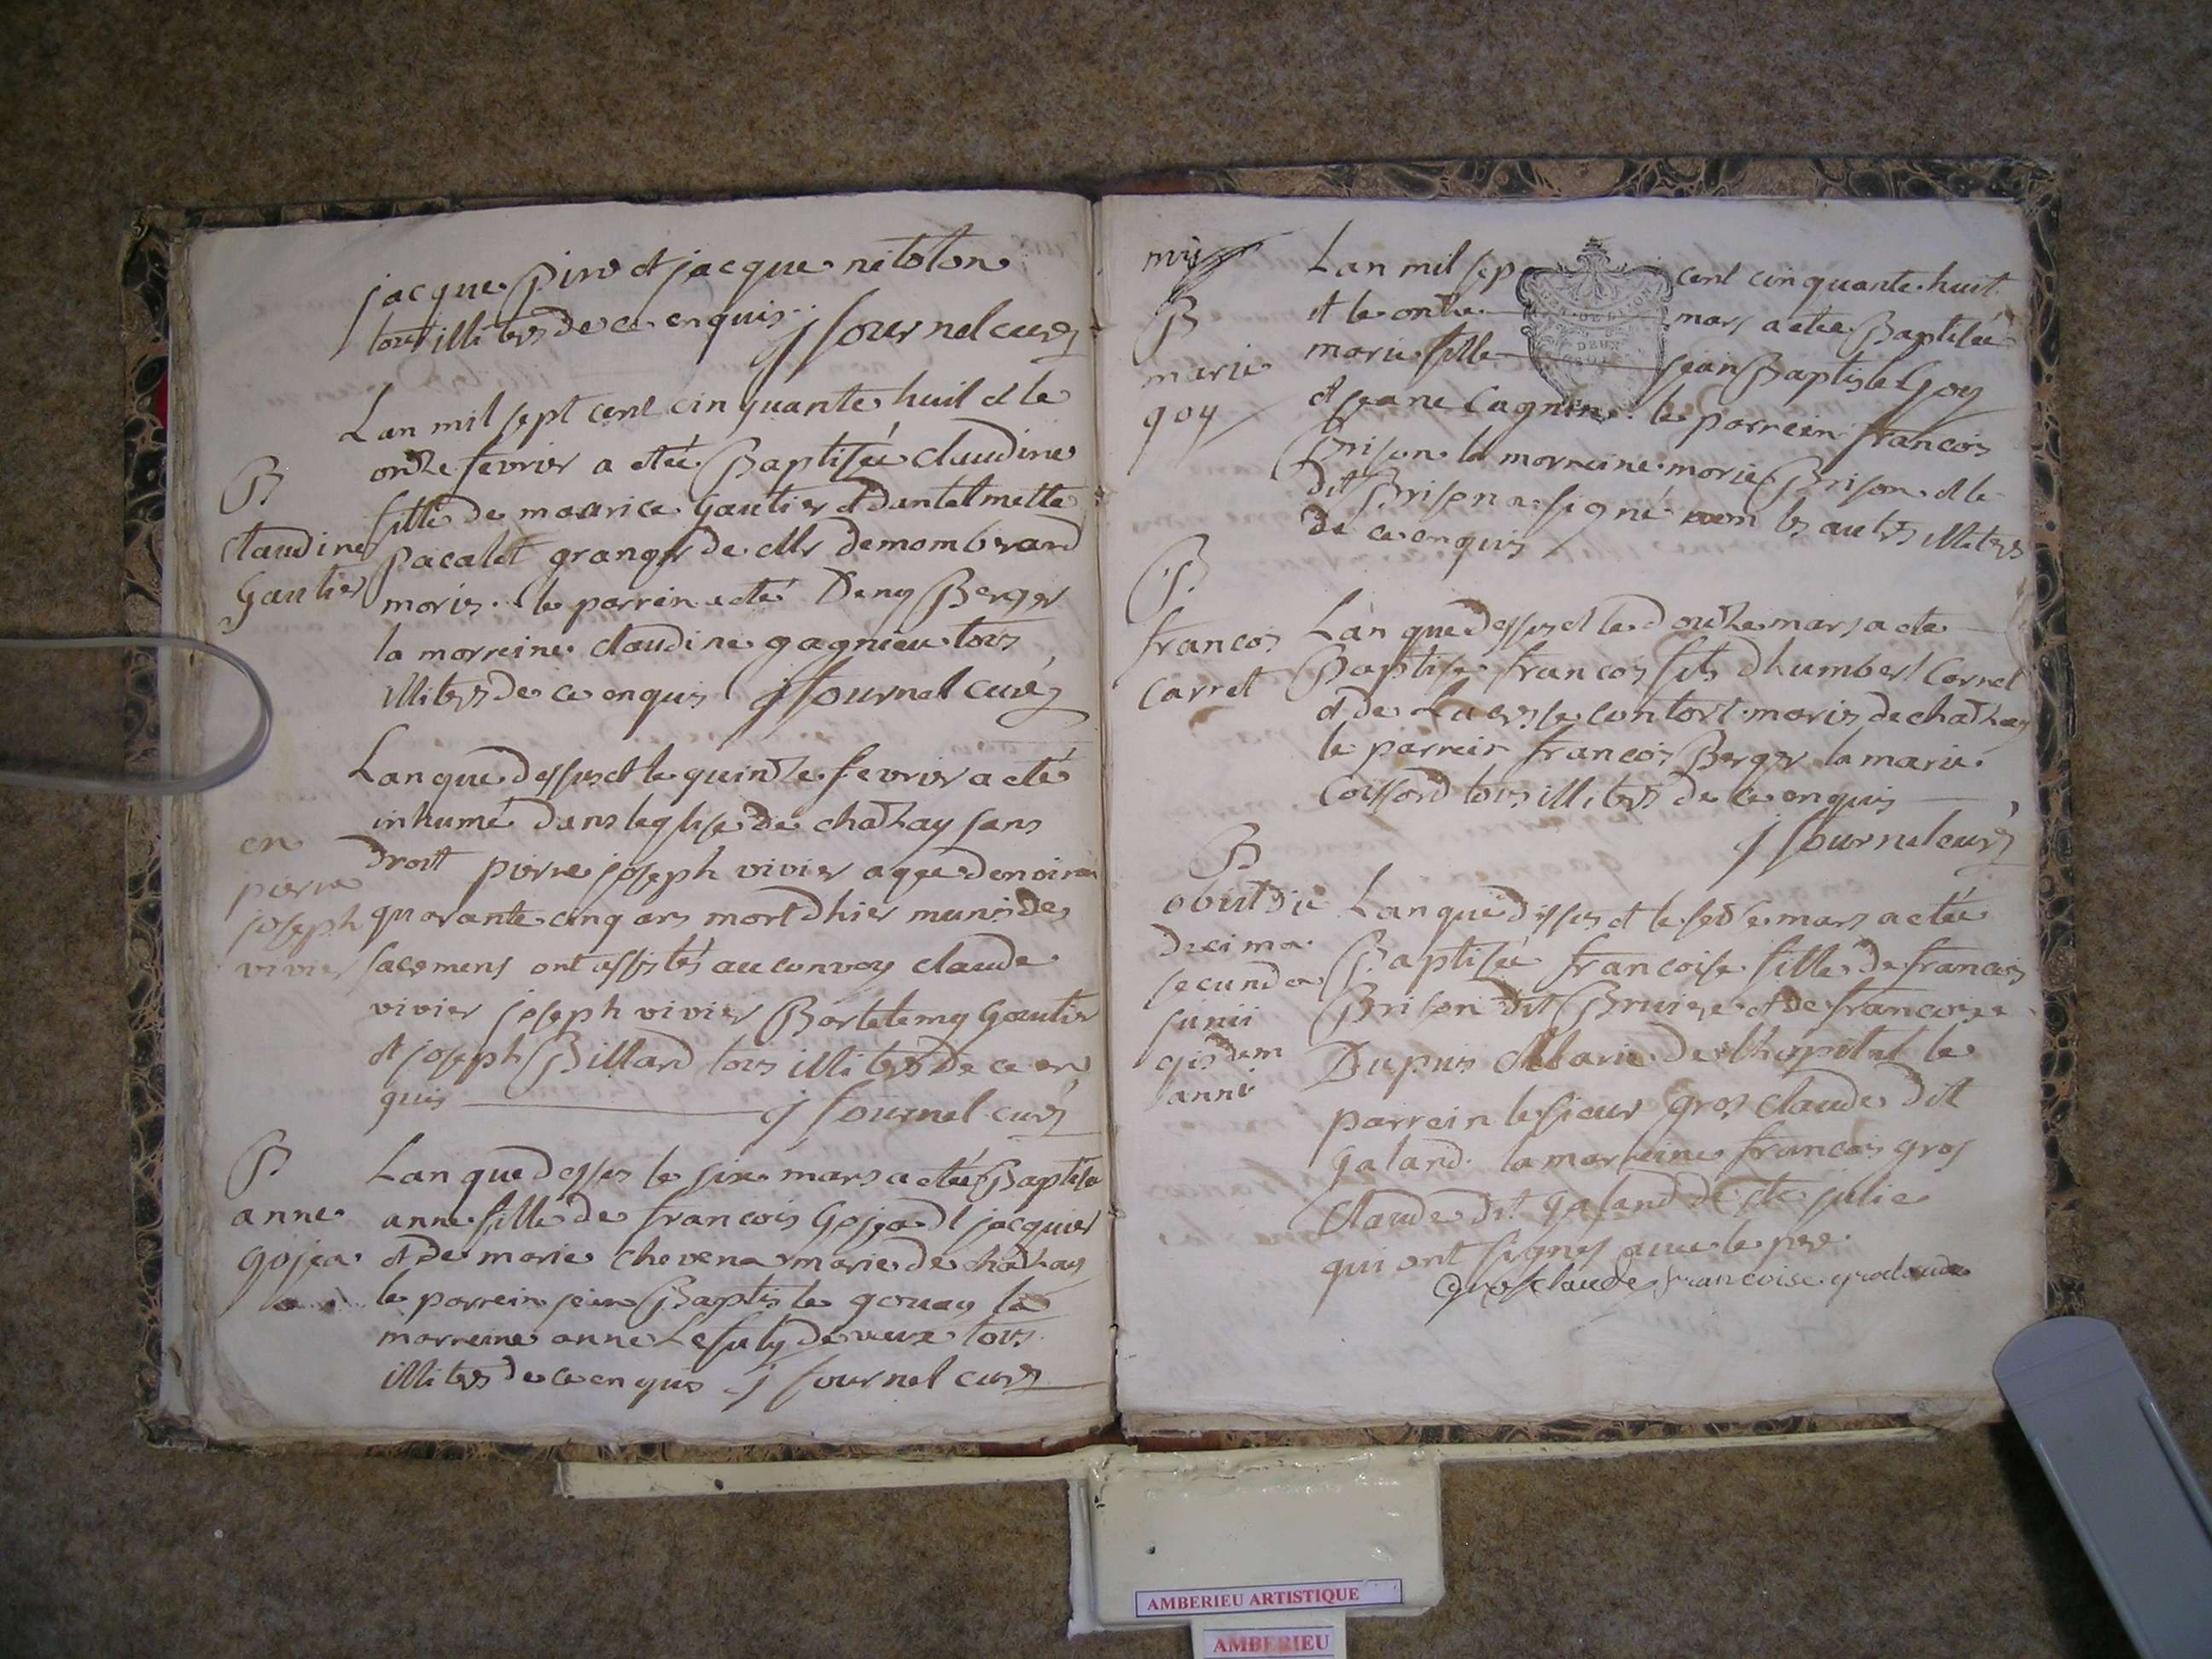 jacque piro et jacque nitoton
tous illiters de ce enquis. j fournel curé
Lan mil sept cent cinquante huit et le
onze fevrier a etéé Baptiséé claudine
B
claudine
Gautier
fille de maurice Gautier et dantelmette
pacalet granger de Mr demomberard
moriés. le parrein a eté Deny Berger
la marreine claudine gagnieu tous
illiters de ce enquis j fournel curé
Lan que dessus et le quinze fevrier a eté
inhumé dans leglise de chazay sans
en
pierre
joseph
vivier
droit pierre joseph vivier agée denoiron
quarante cinq ans mort dhier munis des
sacremens ont assistés au convoy claude
vivier joseph vivier Bartelemy Gautier
et joseph Billard tous illiters de ce en
quis j fournel curé
B
anne
gojea
Lan que dessus le six mars a etéé Baptisé
anne fille de francois Gojjea dt jacquier
et de marie chevena mariés de chazay
le parrein jean Baptiste gouay la
marreine anne Lesuly de vaux tous
illiters de ce enquis j fournel curé
B
marie
goy
Lan mil sept cent cinquante huit
et le onze mars a etéé Baptiséé
DEUX
marie fille jean Baptiste Goy
et jeane Cagnin le parrein francois
Brison la marreine marie Brison et le
dit Brison a signé non les autres illiters
de ce enquis
B
francos
Carret
Lan que dessus et le douze mars a ete
Baptisé francois fils dhumbert Carret
et de contort mariés de chazay
le parrein francois Berger la marie
Coissard tous illiters de ce enquis
j fournel curé
B
obiit die
decima
secunda
junii
ejusdem
anni
Lan que dessus et le seize mars a etéé
Baptiséé francoise fille de francois
Brison dit Bruiere et de francoise
Dupuis mariés de lhopital le
parrein le sieur gros claude dit
galand. la marreine francois gros
claude dit galand de ste julie
qui ont signes avec le pere.
Grosclaude francoise groclaude
AMBERIEU ARTISTIQUE
AMBERIEU